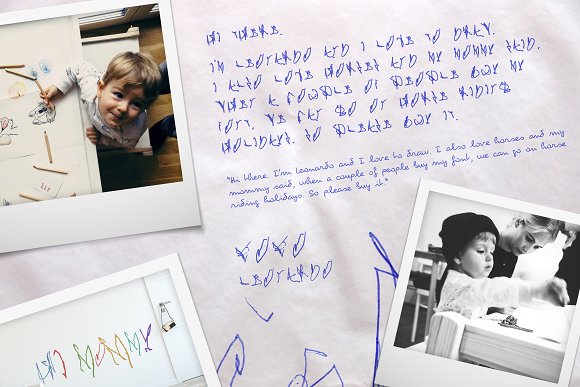 HI THERE.
I'M LEONARDO AND I LOVE TO DRAW.
I ALSO LOVE HORSES AND MY MOMMY SAID,
WHEN A COUPLE OF PEOPLE BUY MY
FONT, WE CAN GO ON HORSE RIDING
HOLIDAYS. SO PLEASE BUY IT.
"Hi there. I'm Leonardo and I love to draw. I also love horses and my
mommy said, when a couple of people buy my font, we can go on horse
riding holidays. So please buy it."
XOXO
LEONARDO
HI MOMMY